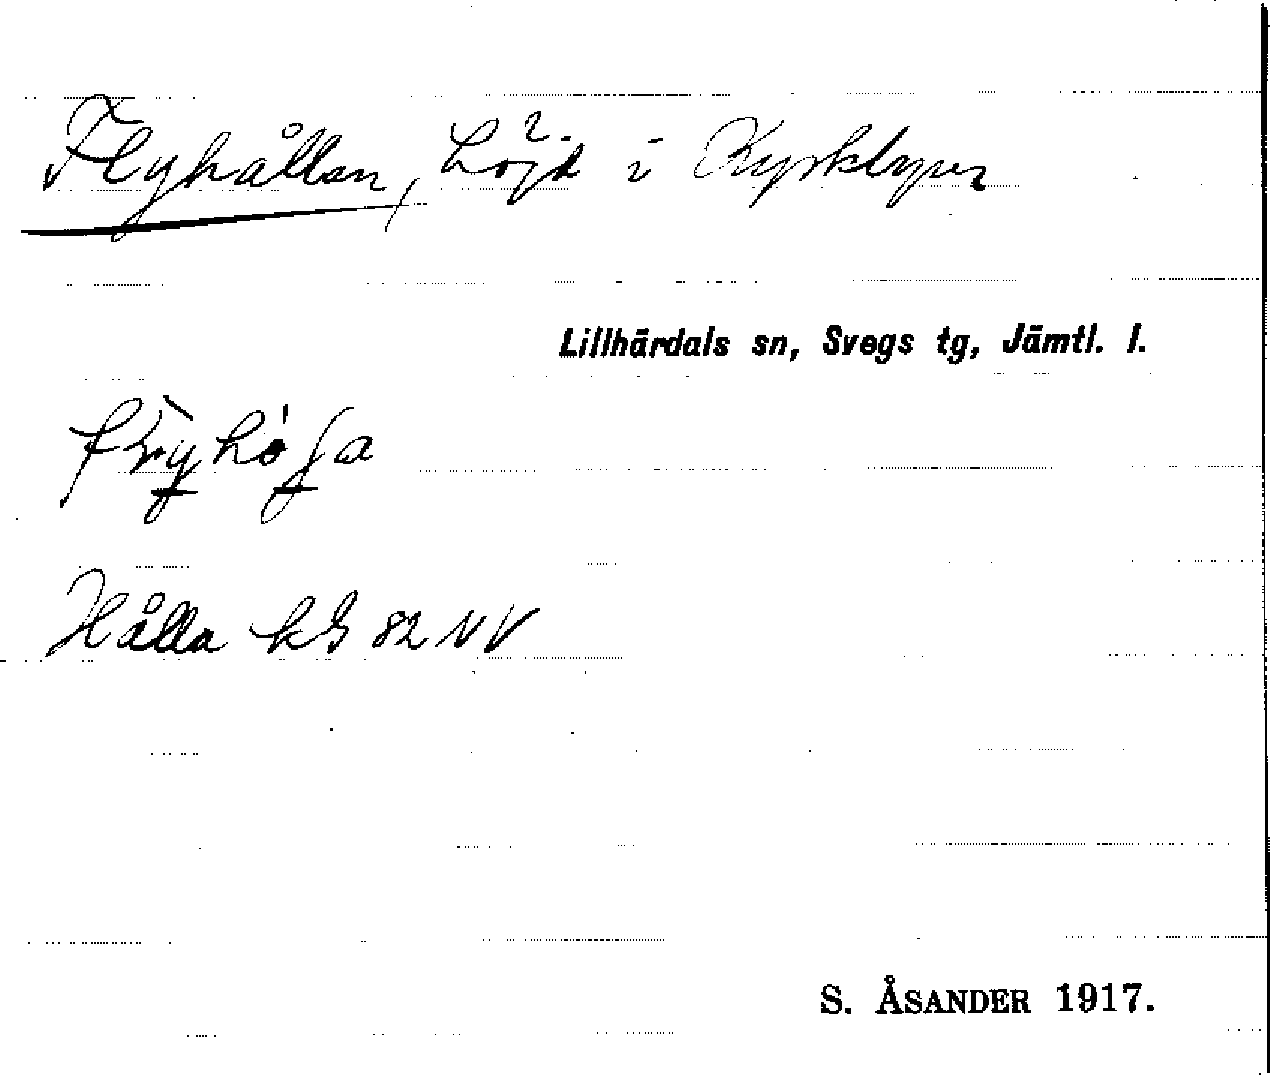 Flyhållen, höjd i Kyrkbyn
Lillhärdals sn, Svegs tg, Jämtl. l.
Hålla kB 82 NV
S. ÅSANDER 1917.